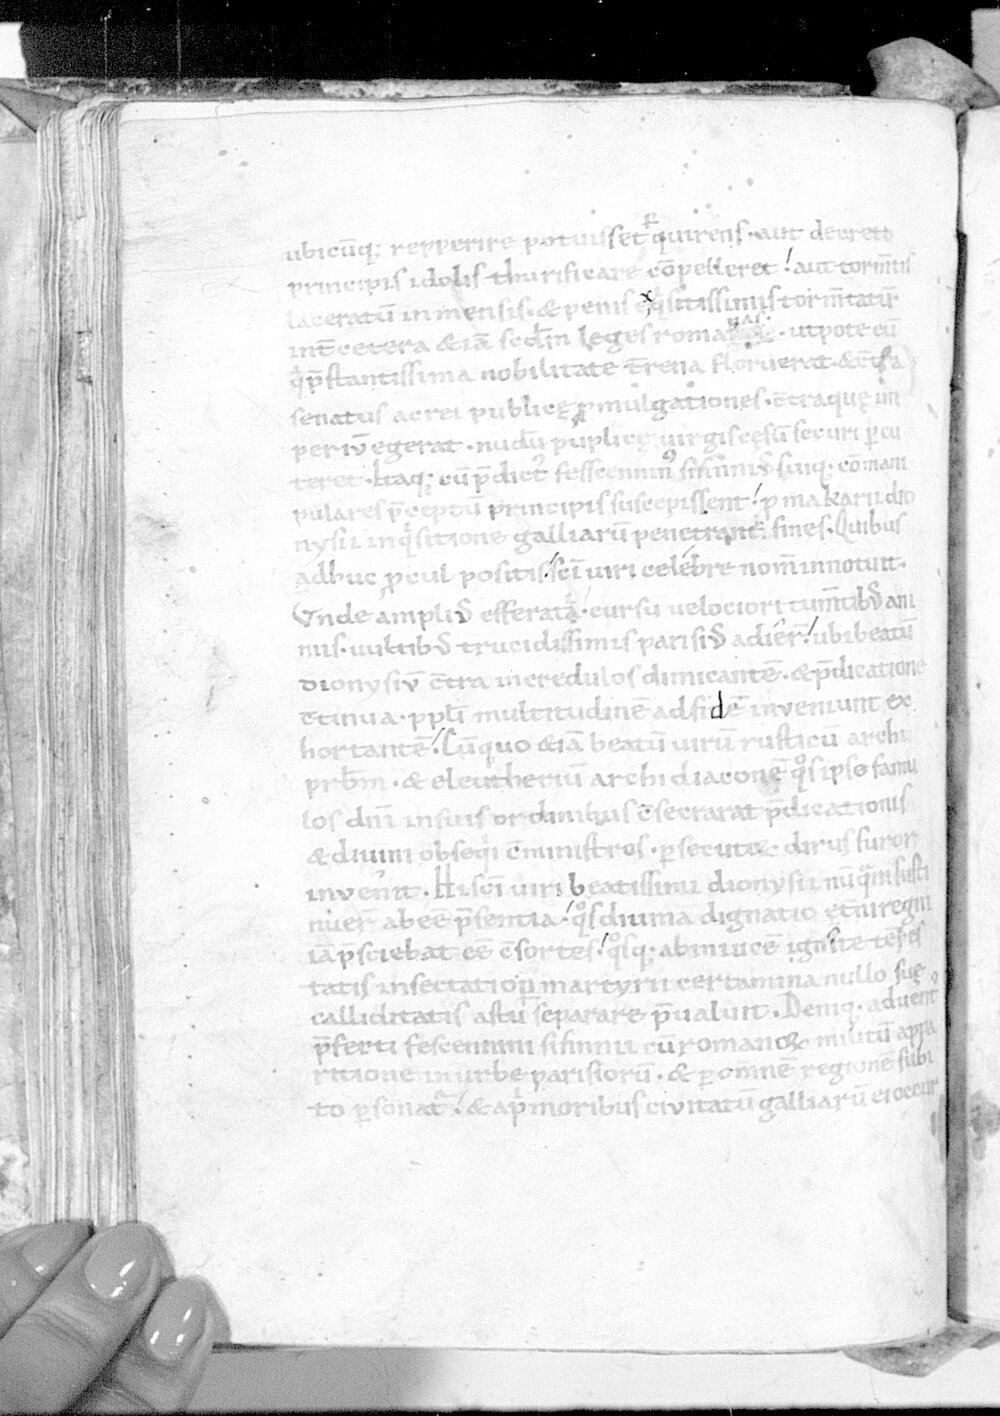 ubicūq; repperire potuisset ꝑquirens · aut decreto
principis idolis thurificare cōpelleret! aut torm̄tis
laceratū inmensis · & penis exq̇sitissimis torm̄tatū ·
int̄ cetera & iā sc̄dm leges romanas · utpote eū
q̇ p̄stantissima nobilitate t̄rena floruerat · & c̄tra
senatus ac rei publicę ꝓmulgationes · c̄traquę im
periū egerat · nudū puplicę uirgis cęsū securi ꝑcu
teret · Itaq; cū p̄dict᾽ fesscennin᾽ sisinni᾽ suiq; cōmani
pulares p̄ceptū principis suscepissent! ꝓ makarii dio
nysii inq̇sitione galliarū penetrant fines · Quibus
adhuc ꝓcul positis! sc̄i uiri celebre nom̄ innotuit ·
Vnde ampli᾽ efferati · cursu uelociori tum̄tib᾽ ani
mis · uultib᾽ trucidissimis parisi᾽ adier̄! ubi beatū
dionysiū c̄tra incredulos dimicantē · & p̄dicatione
c̄tinua · ppl̄i multitudinē ad fidē inveniunt ex
hortantē! Cū quo & iā beatū uirū rusticū archi
prb̄m · & eleutheriū archidiaconē q°s ipse famu
los dn̄i in suis ordinibus c̄secrarat p̄dicationis
& diuini obseq̇i c̄ministros · ꝑsecutorū dirus furor
invenit · Hi sc̄i uiri beatissimi dionysii nūquā susti
nuer̄ abeē p̄sentia! q°s diuina dignatio et̄ni regni
iā p̄sciebat eē c̄sortes! q°sq; ab inuicē ignite
tatis insectatio ꝑ martyrii certamina nullo suę
calliditatis astu separare p̄ualuit · Deniq; aduent᾽
p̄fecti fescennini sisinnii cū romanoꝝ militū appa
ritione in urbe parisiorū · & ꝑ omnē regionē subi
to ꝑsonat! & a ṗmoribus civitatū galliarū ei occur